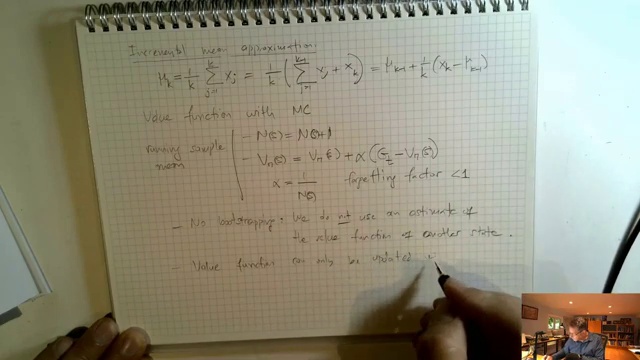 Incremental mean approximation:
μ_k = 1/k ∑_{j=1}^{k} x_j = 1/k ( ∑_{j=1}^{k-1} x_j + x_k ) = μ_{k-1} + 1/k ( x_k - μ_{k-1} )
Value function with MC
running sample mean
- N(s) = N(s)+1
- V_π(s) = V_π(s) + α ( G_t - V_π(s) )
α = 1/N(s) forgetting factor < 1
- No bootstrapping: We do not use an estimate of
the value function of another state.
- Value function can only be updated